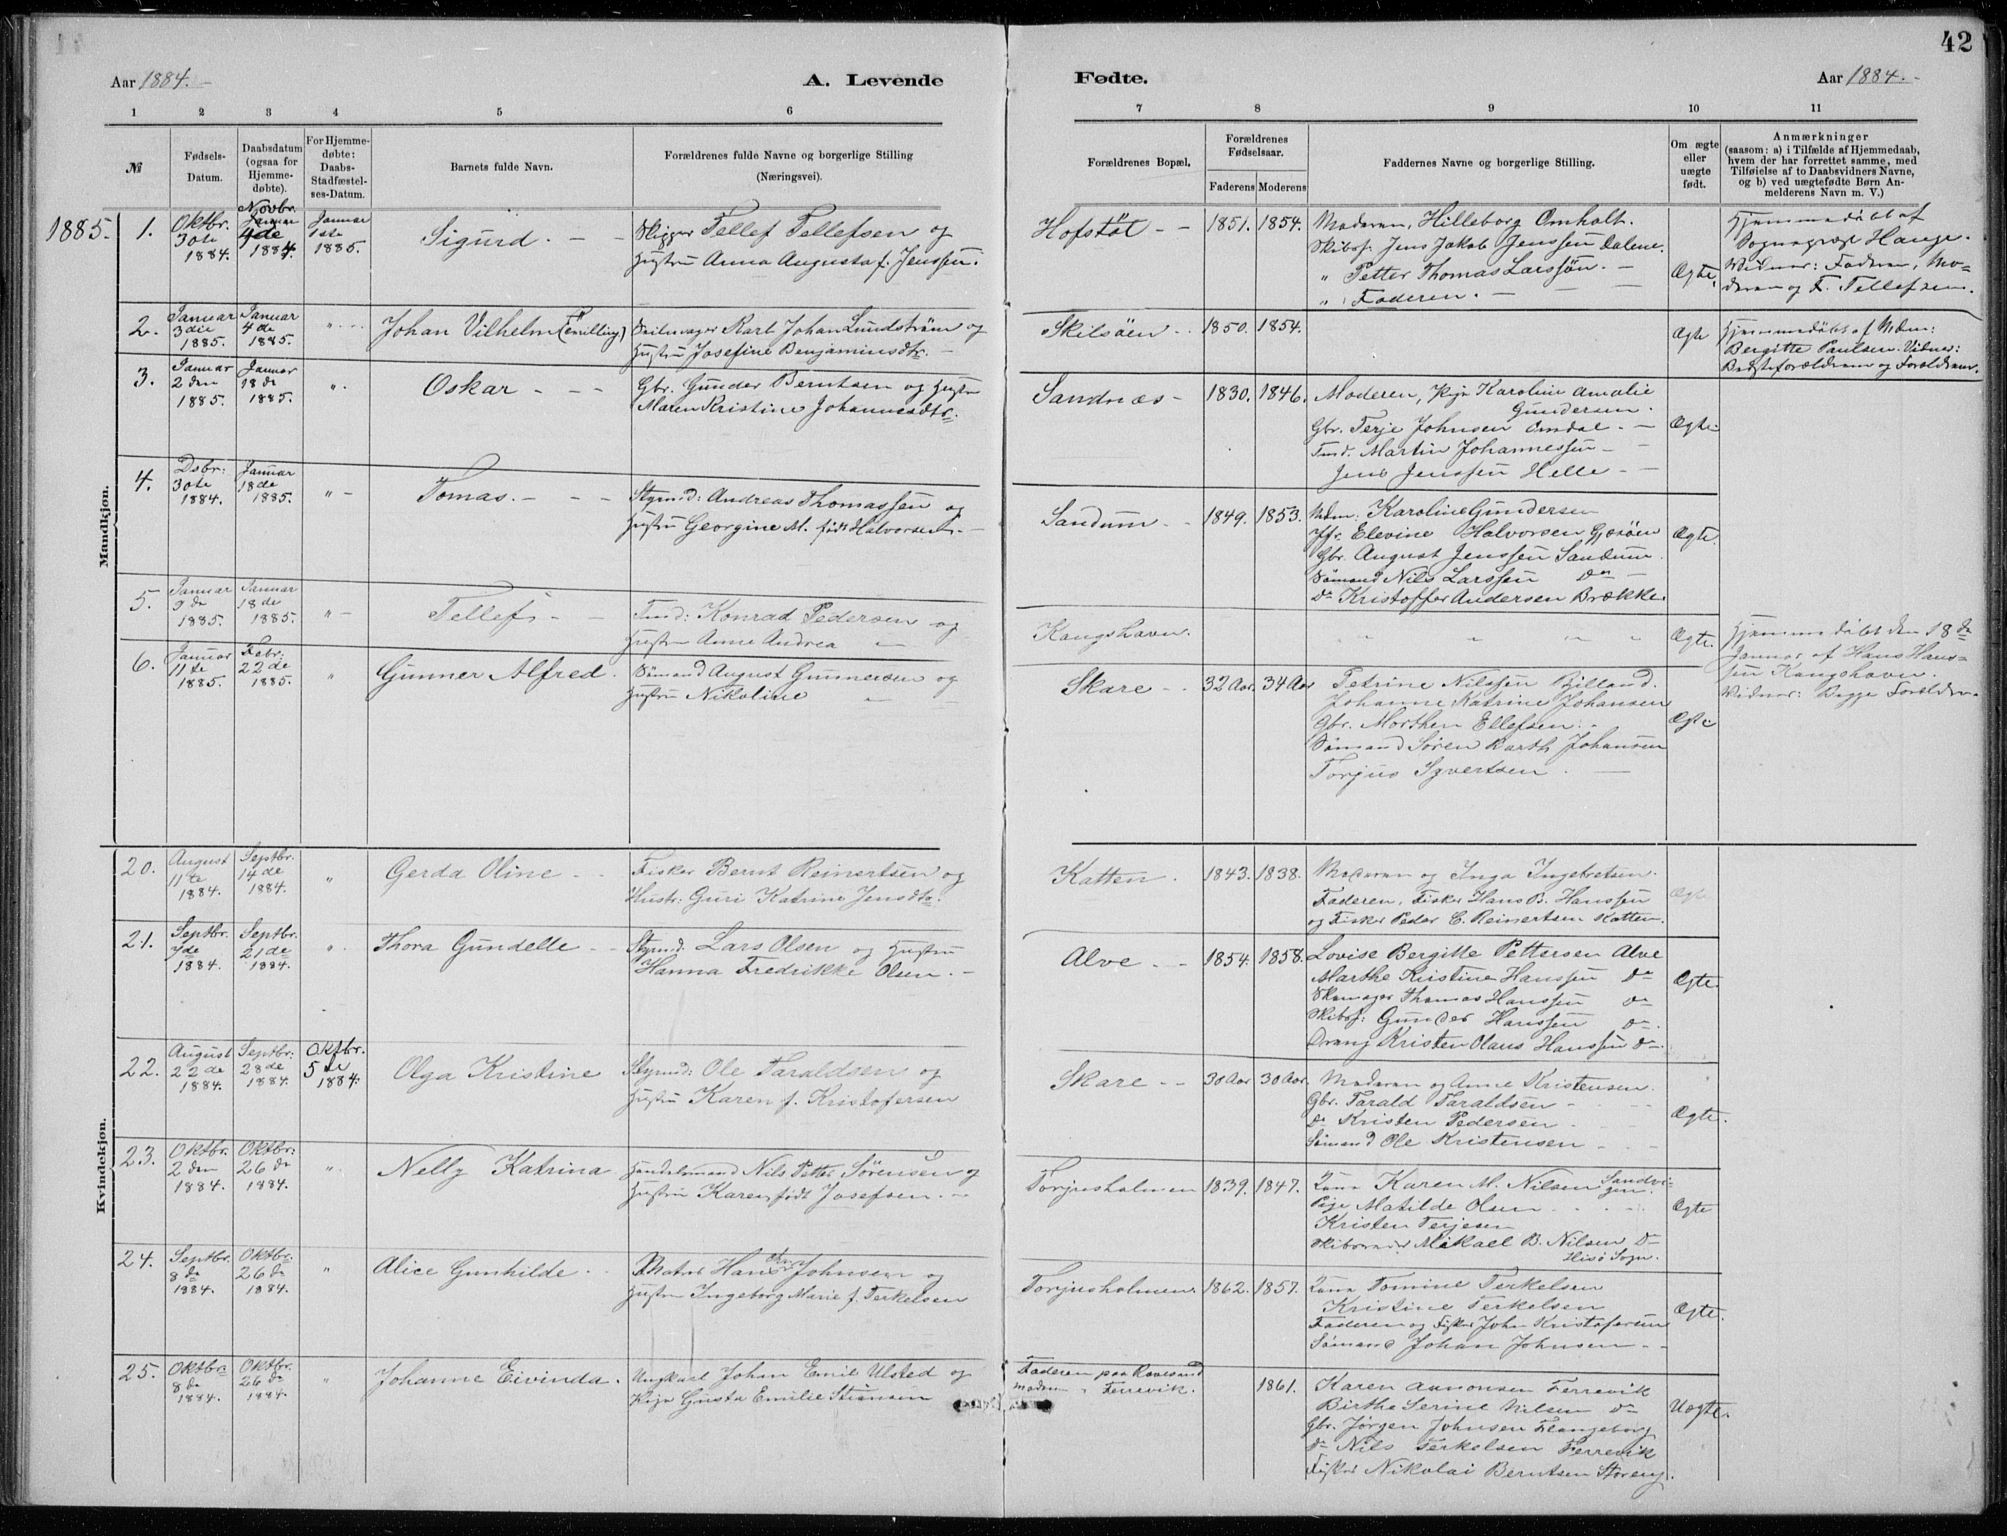 42
Aar 1884.
A. Levende
Fødte.
Aar 1884.
1 2 3 4 5 6 7 8 9 10 11
№
Fødsels-Datum.
Daabsdatum (ogsaa for Hjemme-døbte).
For Hjemme-døbte: Daabs-Stadfæstel-ses-Datum.
Barnets fulde Navn.
Forældrenes fulde Navne og borgerlige Stilling
(Næringsvei).
Forældrenes Bopæl.
Forældrenes Fødselsaar.
Faderens Moderens
Faddernes Navne og borgerlige Stilling.
Om ægte eller uægte født.
Anmærkninger
(saasom: a) i Tilfælde af Hjemmedaab,
hvem der har forrettet samme, med
Tilføielse af to Daabsvidners Navne,
og b) ved uægtefødte Børn An-
melderens Navn m. V.)
Mandkjøn.
1885. 1. Oktbr. 30te 1884. Novbr. 1884. Januar 1ste 1885.
Sigurd.
Skipper Tellef Tellefsen og
Hustru Anna Augusta f. Jenssen.
Hofstøt 1851. 1854.
Moderen, Hilleborg Omholt.
Skibsf. Jens Jakob Jenssen Dalene.
" Petter Thomas Larssøn.
" Faderen.
Ægte.
Hjemmedøbt af
Sogneprest Hauge.
Widner: Faderen, Mo-
deren og F. Tellefsen.
2. Januar 3die 1885. Januar 4de 1885. "
Johan Vilhelm (Tvilling)
Seilmager Karl Johan Lundstrøm og
Hustru Josefine Benjaminsdtr.
Skilsøen 1850. 1854.
Ægte
Hjemmedøbt af Mdm:
Bergitte Paulsen. Vidner:
Bedsteforældrene og Forældrene.
3. Januar 2den 1885. Januar 18de 1885. "
Oskar
Gbr. Gunder Berntsen og Hustru
Maren Kristine Johannesdtr.
Sandnæs 1830. 1846.
Moderen, Pige Karoline Amalie
Gundersen.
Gbr. Terje Johnsen Omdal.
Martin Johannessen
Jens Jenssen Helle
Ægte
4. Dsbr. 30te 1884. Januar 18de 1885. "
Tomas.
Styrmd: Andreas Thomassen og
Hustru Georgine M. født Halvorsen.
Sandum 1849. 1853.
Mdm. Karoline Gundersen
Jfr. Elevine Halvorsen Gjesøen
Gbr. August Jenssen Sandum.
Sømand Nils Larssen do
Do Kristoffer Andersen Brække.
Ægte.
5. Januar 9de 1885. Januar 18de 1885. "
Tellef
Konrad Pedersen og
Hustru Anne Andrea "
Kongshavn.
" " " "
Ægte.
Hjemmedøbt den 18de
Januar af Hans Hans-
sen Kongshavn.
Widner: Begge Forældre.
6. Januar 11te 1885. Febr. 22de 1885. "
Gunner Alfred.
Sømand August Gunnersen og
Hustru Nikoline "
Skare 32 Aar. 34 Aar
Petrine Nilssen
Johanne Katrine Johansen
Gbr. Morthen Ellefsen.
Sømand Søren Barth Johansen
Torjus Syvertsen.
Ægte
Kvindekjøn.
20. August 11te 1884. Septbr. 14de 1884. "
Gerda Oline
Fisker Bernt Reinertsen og
Hustr: Guri Katrine Jensdtr.
Katten. 1843. 1838.
Moderen og Inga Ingebretsen.
Faderen, Fisker Hans B. Hanssen
og Fisker Peder C. Reinertsen Katten.
Ægte
21. Septbr. 7de 1884. Septbr. 21de 1884. "
Thora Gundelle
Styrmd. Lars Olsen og Hustru
Hanna Fredrikke Olsen.
Alve 1854. 1858.
Lovise Bergitte Pettersen Alve
Marthe Kristine Hanssen do
Skomager Thomas Hanssen do
Skibsf: Gunder Hanssen do
Dreng Kristen Olaus Hanssen do
Ægte.
22. August 22de 1884. Septbr: 28de 1884. Oktbr. 5te 1884.
Olga Kristine
Styrmd: Ole Taraldsen og
Hustru Karen f. Kristofersen
Skare 30 Aar 30 Aar.
Moderen og Anne Kristensen.
Gbr. Tarald Taraldsen
Do Kristen Pedersen
Sømand Ole Kristensen
Ægte.
23. Oktbr. 2den 1884. Oktbr: 26de 1884. "
Nelly Katrina
Handelsmand Nils Petter Sørensen og
Hustru Karen, født Josefsen.
Torjusholmen 1839. 1847.
Kona Karen M. Nilsen Sandvi-
gen.
Pige Matilde Olsen
Kristen Terjesen
Mikael B. Nilsen do
Hisø Sogn.
Ægte
24. Septbr. 8de 1884. Oktbr. 26de 1884. "
Alice Gunhilde.
Matros Hans Johnsen og
Hustru Ingeborg Marie f. Terkelsen
Torjusholmen. 1862. 1857.
Kona Tomine Terkelsen
Kristine Terkelsen
Faderen og Fisker John Kristofersen
Sømand Johan Johnsen
Ægte.
25. Oktbr. 8de 1884. Oktbr. 26de 1884. "
Johanne Eivinda.
Ungkarl Johan Emil Ulsted og
Pige Gusta Emilie Stiansen
Faderen paa Revesand
Moderen " Færrevik.
1861.
Karen Aanonsen Færrevik
Birthe Serine Nilsen do
Gbr. Jørgen Johnsen Flangeborg
Do Nils Terkelsen Færrevik
Fisker Nikolai Berntsen Støreng.
Uægte.